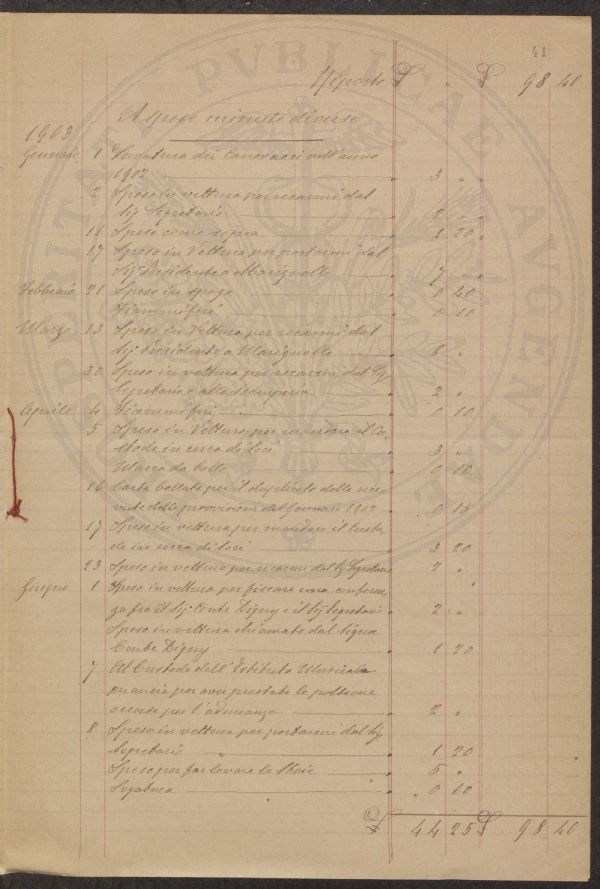 41
Riporto £ " £ 98 40
A spese minute diverse
1903
Gennaio 1 Lavatura dei Canovacci nell'anno
1902 " 3 " "
2 Spese in vettura per recarmi dal
Sig. Segretario " 2 " "
16 Spese come sopra " 1 20 "
17 Spese in Vettura per portarmi dal
Sig. Presidente a Marignolle " 7 " "
Febbraio 21 Spese in spago " 0 40
Fiammiferi " 0 10
Marzo 13 Spese in Vettura per recarmi dal
Sig. Presidente a Marignolle " 8 "
30 Spese in vettura per recarmi dal Sig.
Segretario e alla Stamperia " 2 "
Aprile 4 Fiammiferi " 0 10
5 Spese in Vettura per mandare il Cu-
stode in cerca di Soci " 3 "
Marca da bollo " 0 10
16 Carta bollata per il duplicato delle rice-
vute delle provvisioni del Gennaio 1902 " 0 15
17 Spese in vettura per mandare il Custo-
de in cerca di Soci " 3 20
23 Spese in vettura per recarmi dal Sig. Segretario " 2 "
Giugno 1 Spese in vettura per fissare una conferen-
za fra il Sig. Conte Digny e il Sig. Segretario " 2 "
Spese in vettura chiamato dal Signor
Conte Digny " 1 20
7 Al Custode dell'Istituto Musicale
mancia per aver prestate le poltrone
occorse per l'adunanza " 2 "
8 Spese in vettura per portarmi dal Sig.
Segretario " 1 20
Spese per far levare le Stoie " 5 "
Segatura " 0 60
£ 44 25 £ 98 40
PROSPERITATI PVBLICAE AVGENDAE